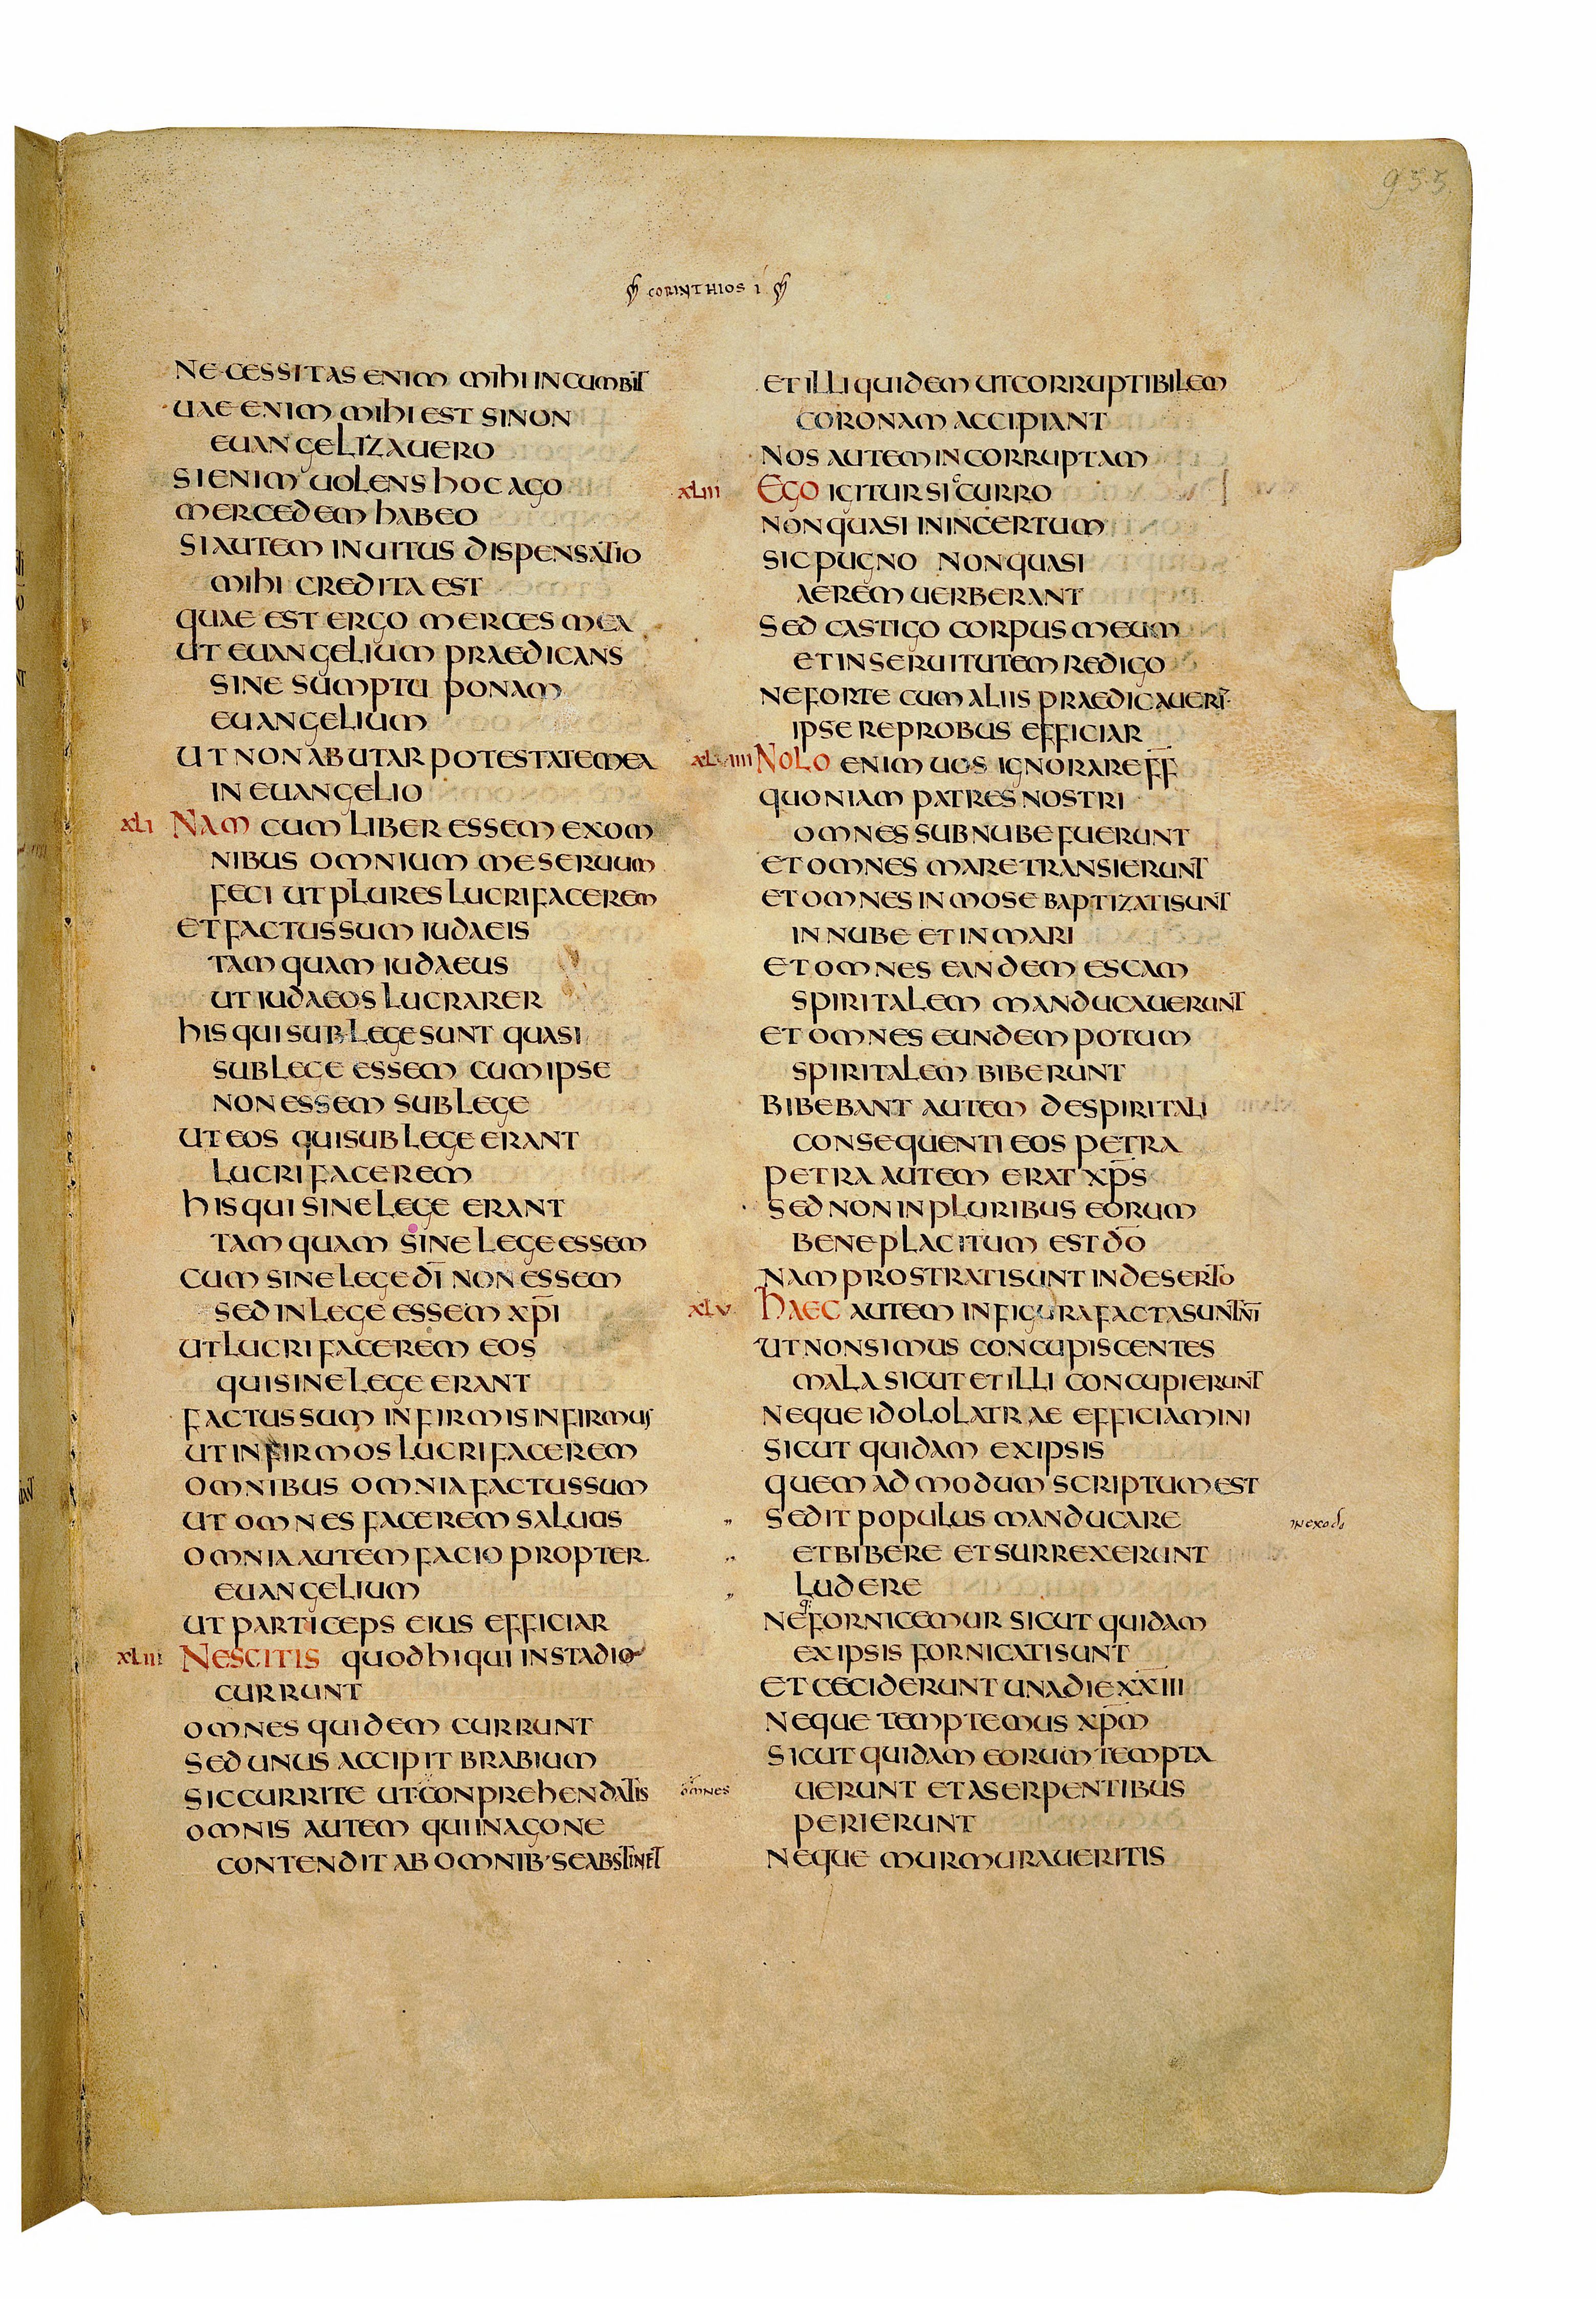 955
CORINTHIOS I
NECESSITAS ENIM MIHI INCUMBIT
UAE ENIM MIHI EST SI NON
EUANGELIZAUERO
SI ENIM UOLENS HOC AGO
MERCEDEM HABEO
SI AUTEM INUITUS DISPENSATIO
MIHI CREDITA EST
QUAE EST ERGO MERCES MEA
UT EUANGELIUM PRAEDICANS
SINE SUMPTU PONAM
EUANGELIUM
UT NON ABUTAR POTESTATE MEA
IN EUANGELIO
XLI NAM CUM LIBER ESSEM EX OM
NIBUS OMNIUM ME SERUUM
FECI UT PLURES LUCRI FACEREM
ET FACTUS SUM IUDAEIS
TAMQUAM IUDAEUS
UT IUDAEOS LUCRARER
HIS QUI SUB LEGE SUNT QUASI
SUB LEGE ESSEM CUM IPSE
NON ESSEM SUB LEGE
UT EOS QUI SUB LEGE ERANT
LUCRI FACEREM
HIS QUI SINE LEGE ERANT
TAMQUAM SINE LEGE ESSEM
CUM SINE LEGE DĪ NON ESSEM
SED IN LEGE ESSEM XP̄I
UT LUCRI FACEREM EOS
QUI SINE LEGE ERANT
FACTUS SUM INFIRMIS INFIRMUS
UT INFIRMOS LUCRI FACEREM
OMNIBUS OMNIA FACTUS SUM
UT OMNES FACEREM SALUOS
OMNIA AUTEM FACIO PROPTER
EUANGELIUM
UT PARTICEPS EIUS EFFICIAR
XLII NESCITIS QUOD HI QUI IN STADIO
CURRUNT
OMNES QUIDEM CURRUNT
SED UNUS ACCIPIT BRABIUM
SIC CURRITE UT CONPREHENDATIS
OMNIS AUTEM QUI IN AGONE
CONTENDIT AB OMNIB· SE ABSTINET
ET ILLI QUIDEM UT CORRUPTIBILEM
CORONAM ACCIPIANT
NOS AUTEM INCORRUPTAM
XLIII EGO IGITUR SIC CURRO
NON QUASI IN INCERTUM
SIC PUGNO NON QUASI
AEREM UERBERANT
SED CASTIGO CORPUS MEUM
ET IN SERUITUTEM REDIGO
NE FORTE CUM ALIIS PRAEDICAUERĪ
IPSE REPROBUS EFFICIAR
XLIIII NOLO ENIM UOS IGNORARE F̄F̄
QUONIAM PATRES NOSTRI
OMNES SUB NUBE FUERUNT
ET OMNES MARE TRANSIERUNT
ET OMNES IN MOSE BAPTIZATI SUNT
IN NUBE ET IN MARI
ET OMNES EANDEM ESCAM
SPIRITALEM MANDUCAUERUNT
ET OMNES EUNDEM POTUM
SPIRITALEM BIBERUNT
BIBEBANT AUTEM DE SPIRITALI
CONSEQUENTI EOS PETRA
PETRA AUTEM ERAT XP̄S
SED NON IN PLURIBUS EORUM
BENEPLACITUM EST DŌ
NAM PROSTRATI SUNT IN DESERTO
XLV HAEC AUTEM IN FIGURA FACTA SUNT N̄I
UT NON SIMUS CONCUPISCENTES
MALA SICUT ET ILLI CONCUPIERUNT
NEQUE IDOLOLATRAE EFFICIAMINI
SICUT QUIDAM EX IPSIS
QUEMADMODUM SCRIPTUM EST
SEDIT POPULUS MANDUCARE
in exodo
ET BIBERE ET SURREXERUNT
LUDERE
NEQ· FORNICEMUR SICUT QUIDAM
EX IPSIS FORNICATI SUNT
ET CECIDERUNT UNA DIE X̄X̄III
NEQUE TEMPTEMUS XP̄M
SICUT QUIDAM EORUM TEMPTA
omnes
UERUNT ET A SERPENTIBUS
PERIERUNT
NEQUE MURMURAUERITIS